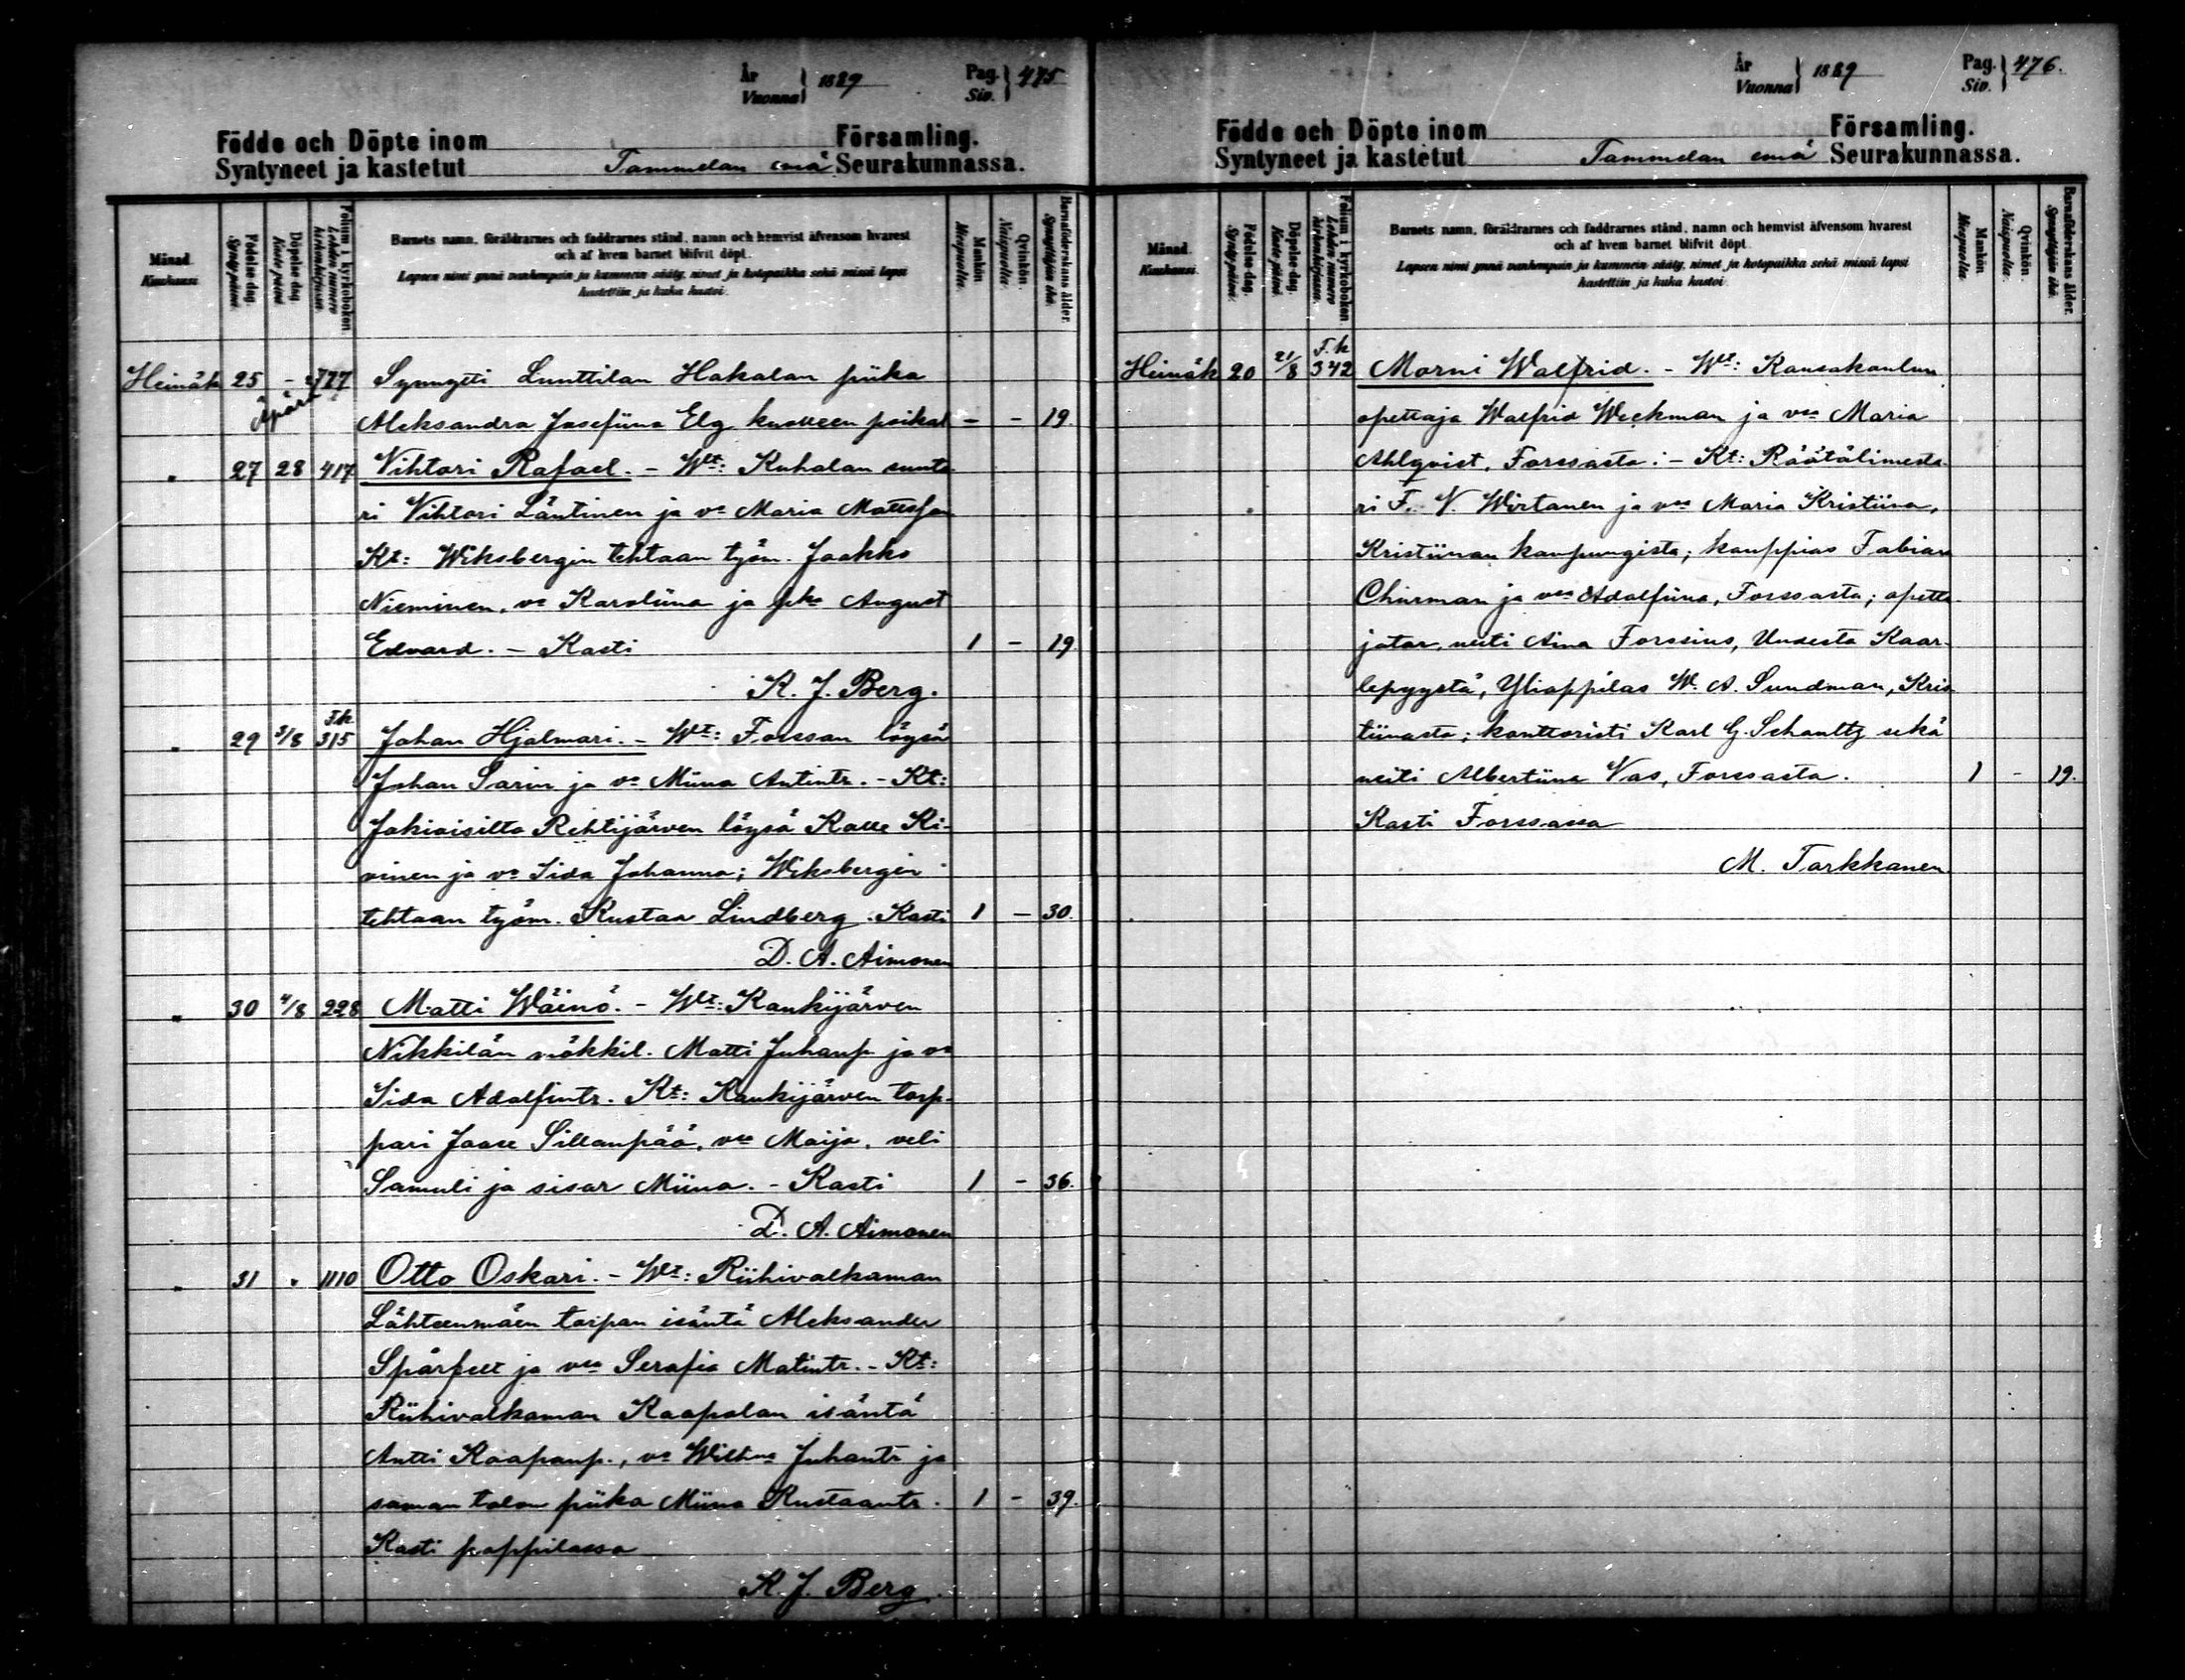 År
Vuonna } 1889
Pag.
Siv. } 475
Födde och Döpte inom Församling.
Syntyneet ja kastetut Tammelan emä Seurakunnassa.
Månad. Kuukausi.
Födelse-dag. Syntypäivä.
Döpelse-dag. Kaste-päivä.
Folium i kyrkoboken. Lehden numero kirkonkirjassa.
Barnets namn, föräldrarnes och faddrarnes stånd, namn och hemvist äfvensom hvarest
och af hvem barnet blifvit döpt.
Lapsen nimi ynnä vanhempain ja kummein sääty, nimet ja kotopaikka sekä missä lapsi
kastettiin ja kuka kastoi.
Mankön. Miespuolta.
Qvinkön. Naispuolta.
Barnaföderskans ålder. Synnyttäjän ikä.
Heinäk 25 - 777 Synnytti Lunttilan Hakalan piika
Äpärä Aleksandra Josefiina Elg kuolleen poikal - - 19.
" 27 28 417 Vihtori Rafael. - Wt: Kuhalan sunta
ri Vihtori Läntinen ja vo Maria Mattsson
Kt: Wiksbergin tehtaan työm. Jaakko
Nieminen, vo Karoliina ja pka August
Edvard. - Kasti 1 - 19
K. J. Berg.
" 29 3/8 F.k. 315 Johan Hjalmari. - Wt: Forssan löysä
Johan Sarin ja vo Miina Antintr. - Kt:
Jokioisilta Rehtijärven löysä Kalle Ki-
vinen ja vo Iida Johanna; Wiksbergin
tehtaan työm. Kustaa Lindberg. Kasti 1 - 30.
D. A. Aimonen
" 30 4/8 228 Matti Wäinö. - Wt: Kaukijärven
Nikkilän mökkil. Matti Juhanp. ja vo
Iida Adolfintr. Kt: Kaukijärven torp-
pari Jaase Sillanpää, vo Maija, veli
Samuli ja sisar Miina. - Kasti 1 - 36.
D. A. Aimonen
" 31 " 1110 Otto Oskari. - Wt: Riihivalkaman
Lähteenmäen torpan isäntä Aleksander
Spårfelt ja vo Serafia Matintr. - Kt:
Riihivalkaman Kaapolan isäntä
Antti Kaapanp., vo Wilhna Juhantr ja
saman talon piika Miina Kustaantr. 1 - 39.
Kasti pappilassa
K. J. Berg.
År
Vuonna } 1889
Pag.
Siv. } 476.
Födde och Döpte inom Församling.
Syntyneet ja kastetut Tammelan emä Seurakunnassa.
Månad. Kuukausi.
Födelse-dag. Syntypäivä.
Döpelse-dag. Kaste-päivä.
Folium i kyrkoboken. Lehden numero kirkonkirjassa.
Barnets namn, föräldrarnes och faddrarnes stånd, namn och hemvist äfvensom hvarest
och af hvem barnet blifvit döpt.
Lapsen nimi ynnä vanhempain ja kummein sääty, nimet ja kotopaikka sekä missä lapsi
kastettiin ja kuka kastoi.
Mankön. Miespuolta.
Qvinkön. Naispuolta.
Barnaföderskans ålder. Synnyttäjän ikä.
Heinäk 20 21/8 F.k 342 Morni Walfrid. - Wt: Kansakoulun
opettaja Walfrid Weckman ja vo Maria
Ahlqvist, Forssasta. - Kt: Räätälimesta-
ri F. V. Wirtanen ja vo Maria Kristiina,
Kristiinan kaupungista; kauppias Fabian
Churman ja vo Adolfiina, Forssasta; opetta-
jatar, neiti Aina Forssius, Uudesta Kaar-
lepyystä, Yliappilas W. A. Sundman, Kris
tiinasta; konttoristi Karl G. Schaultz sekä
neiti Albertiina Vas, Forssasta. 1 - 19.
Kasti Forssassa
M. Tarkkanen.